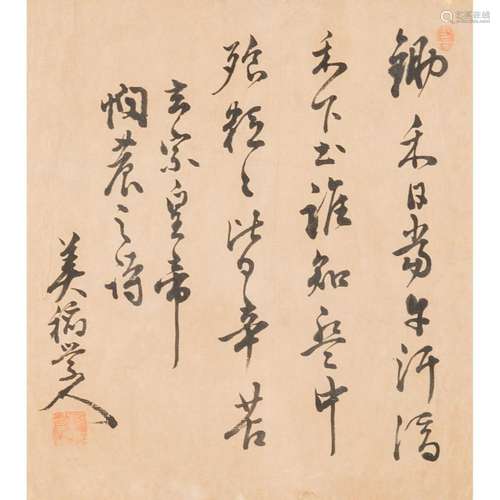 鋤禾日當午汗滴
禾下土誰知盤中
飱粒々皆辛苦
玄宗皇帝
憫農之詩
美稲学人